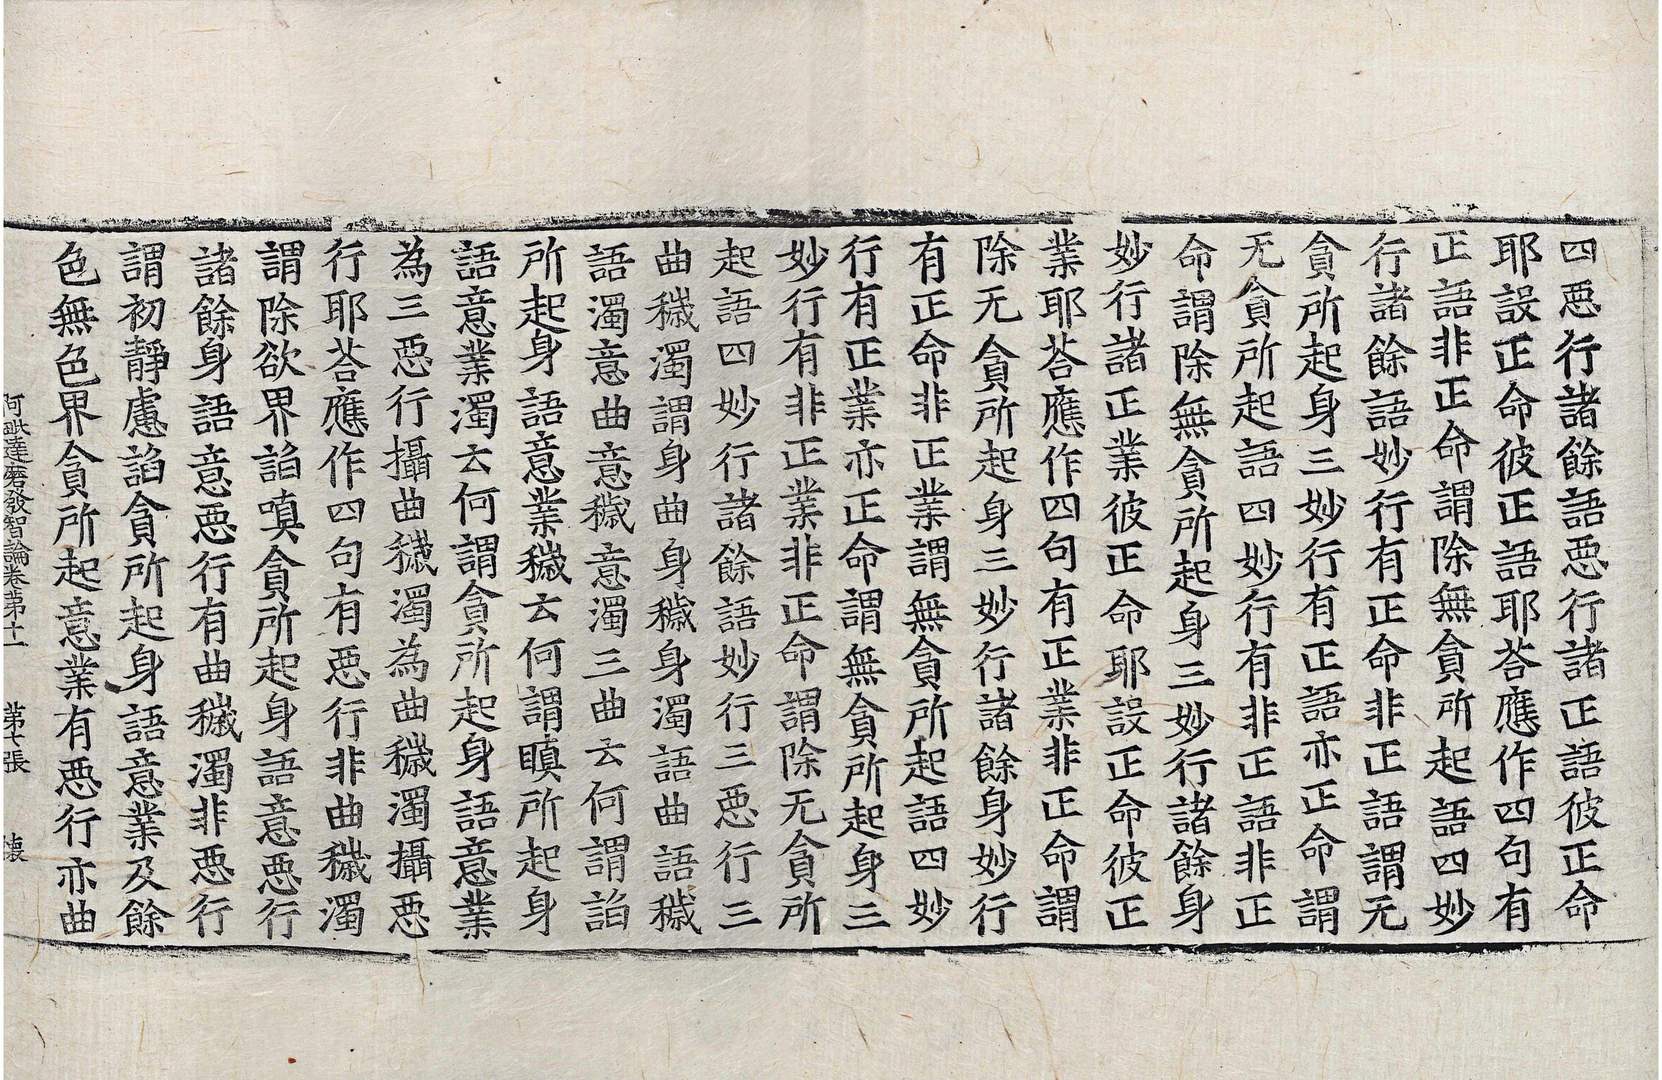 四惡行諸餘語惡行諸正語彼正命
耶設正命彼正語耶荅應作四句有
正語非正命謂除無貪所起語四妙
行諸餘語妙行有正命非正語謂无
貪所起身三妙行有正語亦正命謂
无貪所起語四妙行有非正語非正
命謂除無貪所起身三妙行諸餘身
妙行諸正業彼正命耶設正命彼正
業耶荅應作四句有正業非正命謂
除无貪所起身三妙行諸餘身妙行
有正命非正業謂無貪所起語四妙
行有正業亦正命謂無貪所起身三
妙行有非正業非正命謂除无貪所
起語四妙行諸餘語妙行三惡行三
曲穢濁謂身曲身穢身濁語曲語穢
語濁意曲意穢意濁三曲云何謂諂
所起身語意業穢云何謂瞋所起身
語意業濁云何謂貪所起身語意業
為三惡行攝曲穢濁為曲穢濁攝惡
行耶荅應作四句有惡行非曲穢濁
謂除欲界諂嗔貪所起身語意惡行
諸餘身語意惡行有曲穢濁非惡行
謂初靜慮諂貪所起身語意業及餘
色無色界貪所起意業有惡行亦曲
阿毗達磨發智論卷第十一 第七張 懐